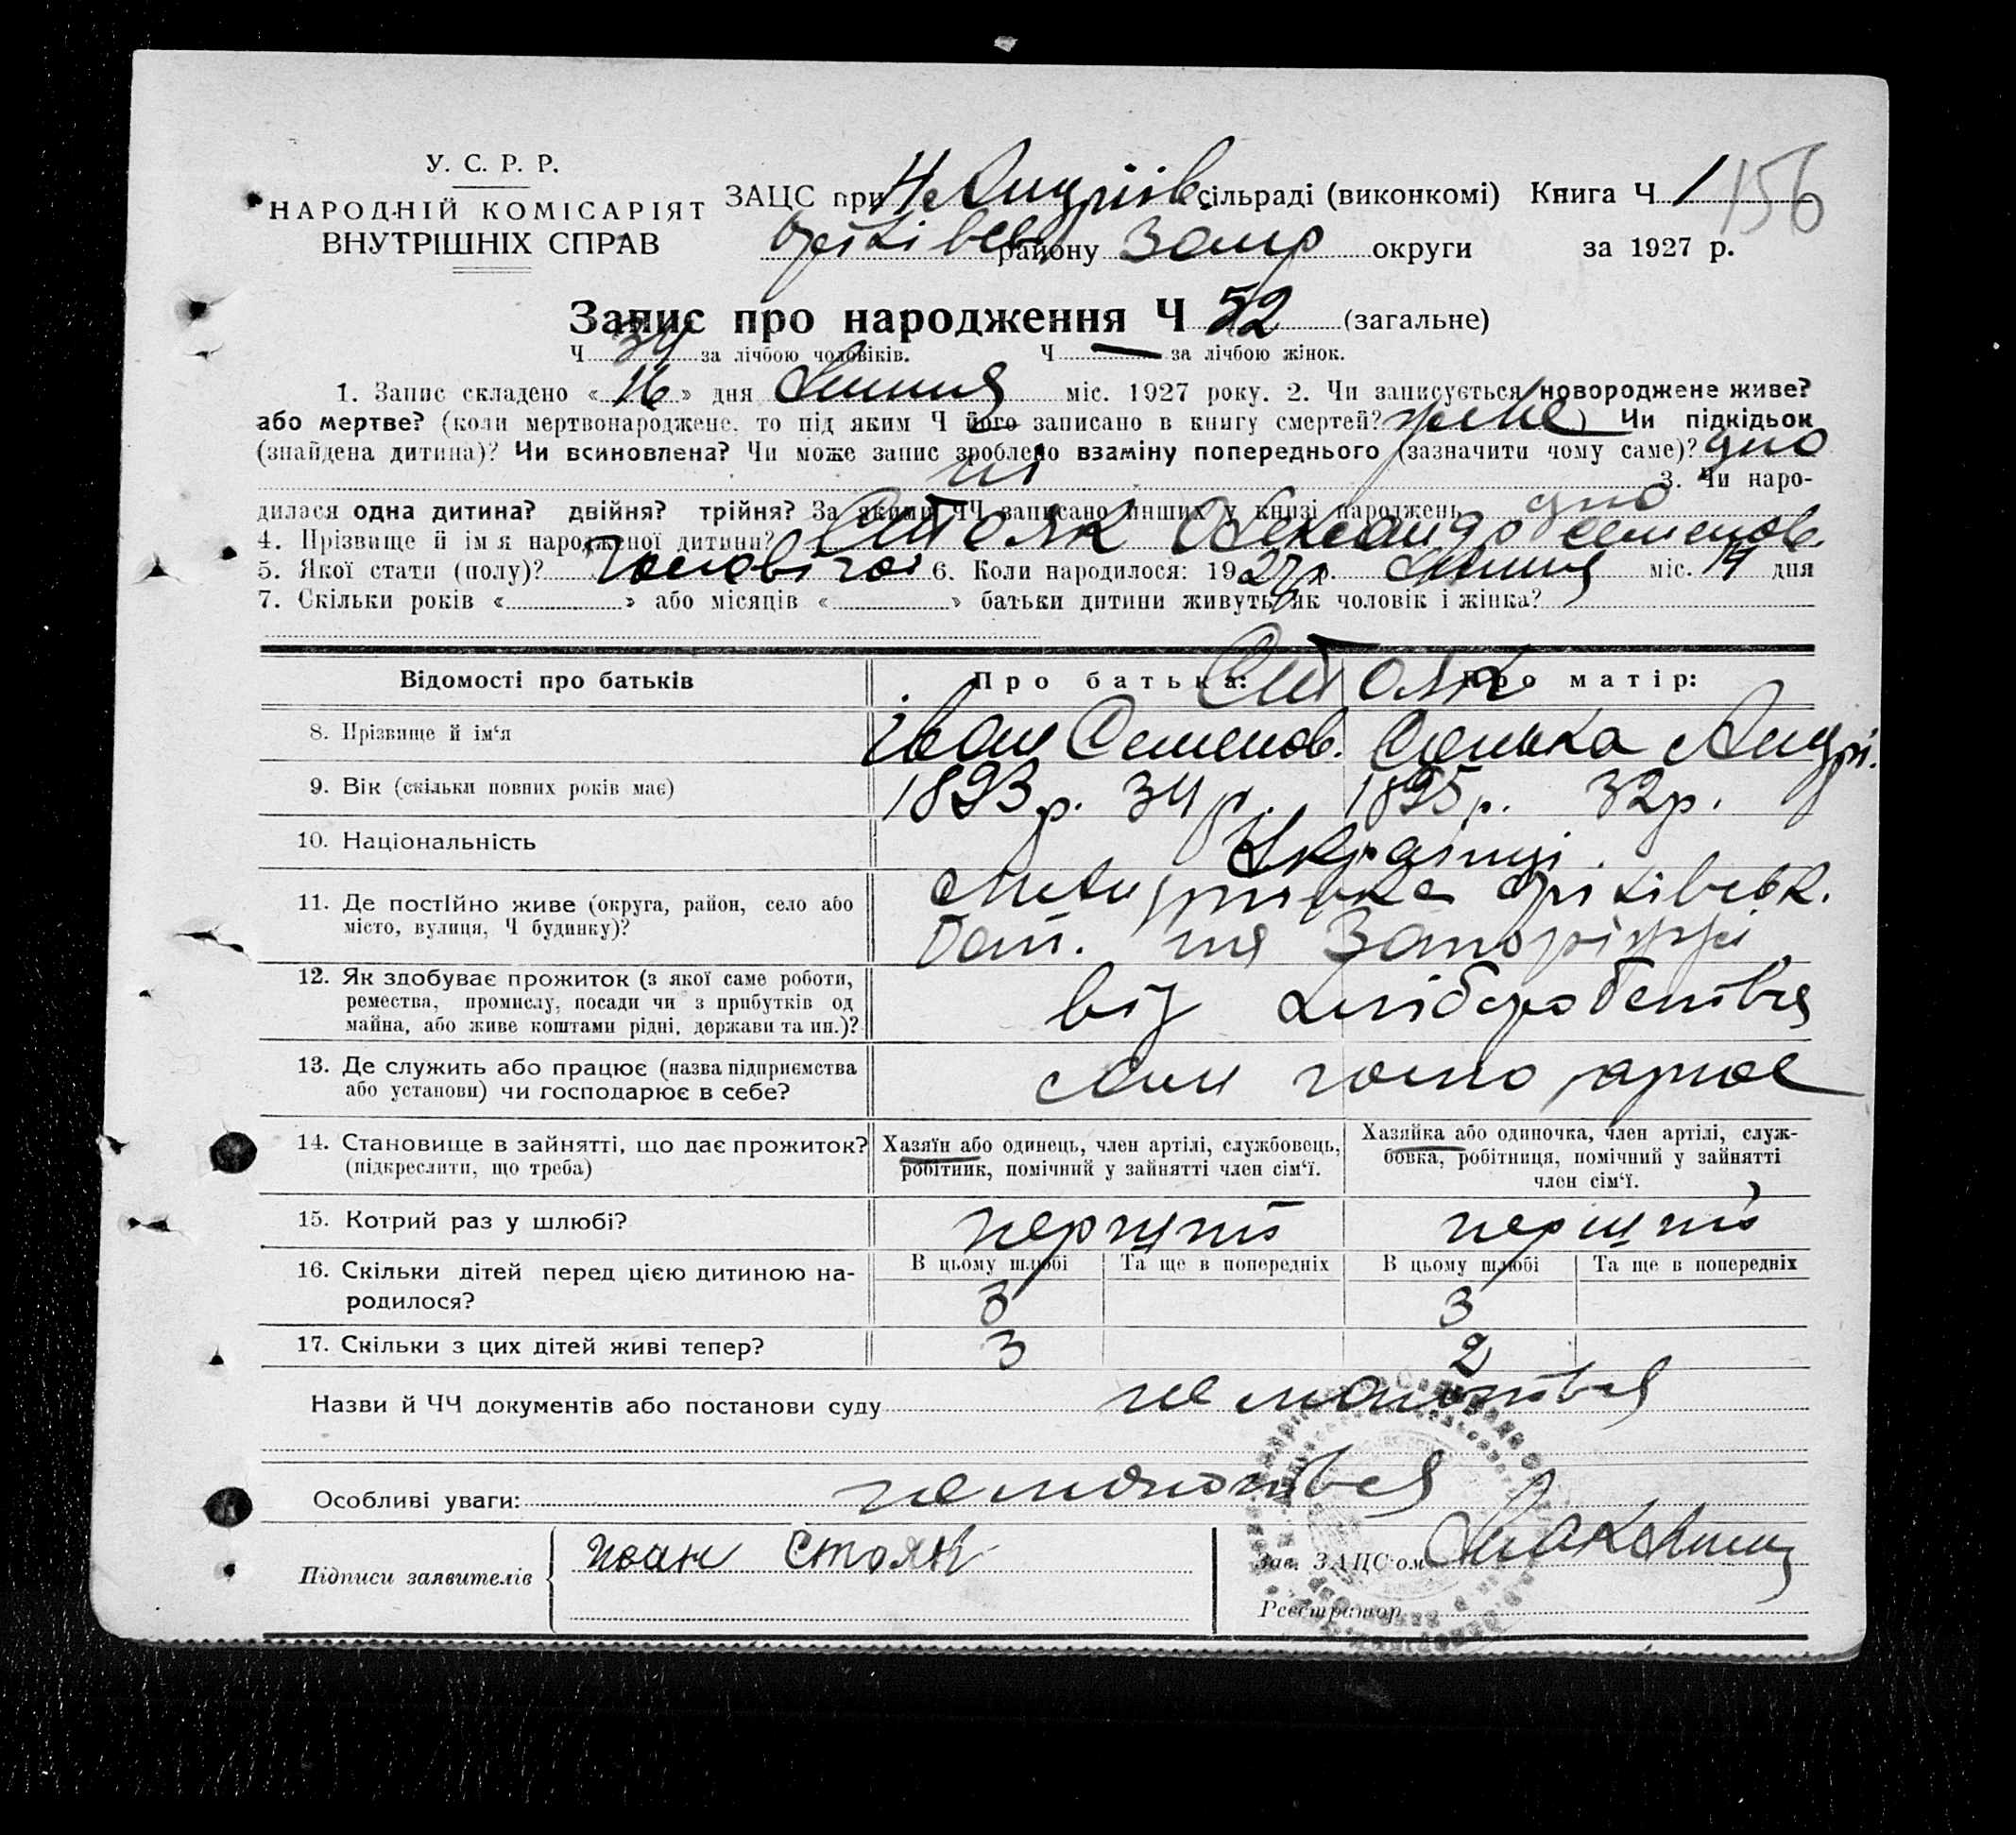 У. С. Р. Р.
НАРОДНІЙ КОМІСАРІЯТ
ВНУТРІШНІХ СПРАВ
ЗАЦС при Н Андріїв. сільраді (виконкомі) Книга Ч 1 156
району Запор округи за 1927 р.
Запис про народження Ч 52 (загальне)
Ч 34 за лічбою чоловіків. Ч — за лічбою жінок.
1. Запис складено «16» дня Липня міс. 1927 року. 2. Чи записується новороджене живе?
або мертве? (коли мертвонароджене, то під яким Ч його записано в книгу смертей? живе) Чи підкідьок
(знайдена дитина)? Чи всиновлена? Чи може запис зроблено взаміну попереднього (зазначити чому саме)?
ні 3. Чи наро-
дилася одна дитина? двійня? трійня? За якими ЧЧ записано инших у книзі народжень
4. Прізвище й ім'я народженої дитини? Стояк Олександр
5. Якої стати (полу)? Чоловічої 6. Коли народилося: 1927 р. Липня міс. 14 дня
7. Скільки років «» або місяців «» батьки дитини живуть як чоловік і жінка?
Відомості про батьків Про батька: Про матір:
Стояк
8. Прізвище й ім'я Іван Семенов. Андрі.
9. Вік (скільки повних років має) 1893 р. 34 р. 1895 р. 32 р.
10. Національність Українці.
11. Де постійно живе (округа, район, село або
місто, вулиця, Ч будинку)?
на Запоріжжі
12. Як здобуває прожиток (з якої саме роботи,
ремества, промислу, посади чи з прибутків од
майна, або живе коштами рідні, держави та ин.)?
від хліборобства
13. Де служить або працює (назва підприємства
або установи) чи господарює в себе?
14. Становище в зайнятті, що дає прожиток?
(підкреслити, що треба)
Хазяїн або одинець, член артілі, службовець,
робітник, помічний у зайнятті член сім'ї.
Хазяйка або одиночка, член артілі, служ-
бовка, робітниця, помічний у зайнятті
член сім'ї.
15. Котрий раз у шлюбі?
16. Скільки дітей перед цією дитиною на-
родилося?
В цьому шлюбі Та ще в попередніх В цьому шлюбі Та ще в попередніх
3 3
17. Скільки з цих дітей живі тепер? 3 2
Назви й ЧЧ документів або постанови суду
Особливі уваги:
Підписи заявителів Иван Стояк
Зав. ЗАЦС'ом
Реєстратор